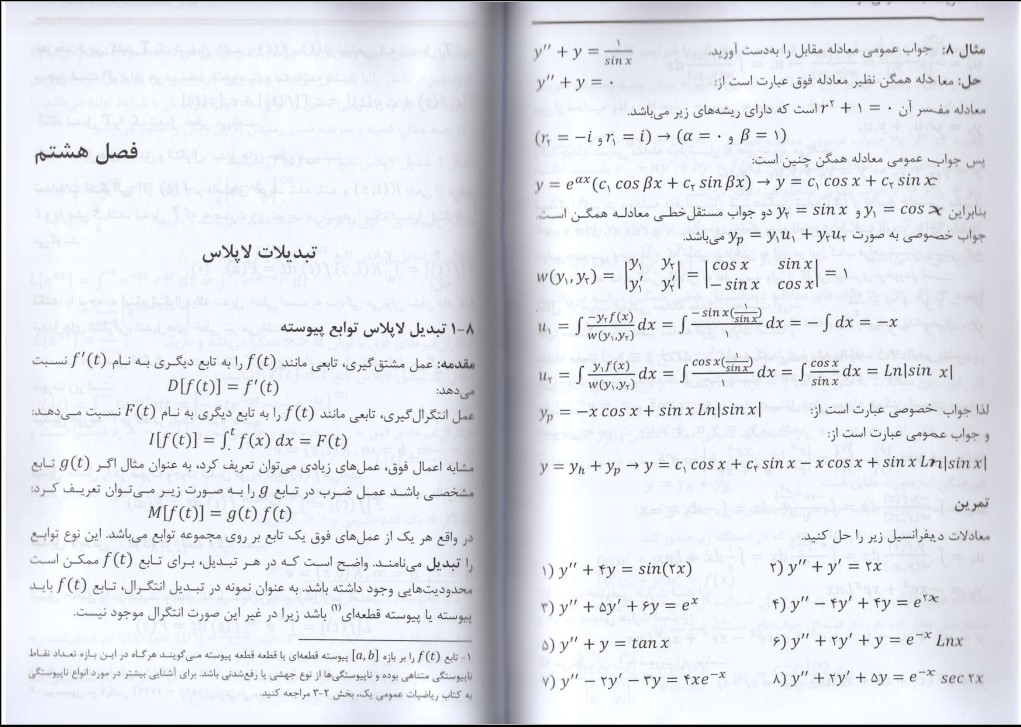 مثال ۸: جواب عمومی معادله مقابل را به‌دست آورید. y'' + y = ۱/sin x
حل: معادله همگن نظیر معادله فوق عبارت است از: y'' + y = ۰
معادله مفسر آن r² + ۱ = ۰ است که دارای ریشه‌های زیر می‌باشد.
(r₂ = −i و r₁ = i) → (α = ۰ و β = ۱)
پس جواب عمومی معادله همگن چنین است:
y = e^{αx}(c₁ cos βx + c₂ sin βx) → y = c₁ cos x + c₂ sin x
بنابراین y₁ = cos x و y₂ = sin x دو جواب مستقل‌خطی معادله همگن است.
جواب خصوصی به صورت y_p = y₁u₁ + y₂u₂ می‌باشد.
w(y₁, y₂) = |y₁ y₂; y₁' y₂'| = |cos x sin x; − sin x cos x| = ۱
u₁ = ∫ −y₂f(x)/w(y₁,y₂) dx = ∫ −sin x(۱/sin x)/۱ dx = − ∫ dx = −x
u₂ = ∫ y₁f(x)/w(y₁,y₂) dx = ∫ cos x(۱/sin x)/۱ dx = ∫ cos x/sin x dx = Ln|sin x|
لذا جواب خصوصی عبارت است از: y_p = −x cos x + sin x Ln|sin x|
و جواب عمومی عبارت است از:
y = y_h + y_p → y = c₁ cos x + c₂ sin x − x cos x + sin x Ln|sin x|
تمرین
معادلات دیفرانسیل زیر را حل کنید.
۱) y'' + ۴y = sin(۲x) ۲) y'' + y' = ۲x
۳) y'' + ۵y' + ۶y = e^x ۴) y'' − ۴y' + ۴y = e^{۲x}
۵) y'' + y = tan x ۶) y'' + ۲y' + y = e^{−x} Lnx
۷) y'' − ۲y' − ۳y = ۴xe^{−x} ۸) y'' + ۲y' + ۵y = e^{−x} sec ۲x
فصل هشتم
تبدیلات لاپلاس
۸-۱ تبدیل لاپلاس توابع پیوسته
مقدمه: عمل مشتق‌گیری، تابعی مانند f(t) را به تابع دیگری به نام f'(t) نسبت
می‌دهد:
D[f(t)] = f'(t)
عمل انتگرال‌گیری، تابعی مانند f(t) را به تابع دیگری به نام F(t) نسبت می‌دهد:
I[f(t)] = ∫₀^t f(x) dx = F(t)
مشابه اعمال فوق، عمل‌های زیادی می‌توان تعریف کرد، به عنوان مثال اگر g(t) تابع
مشخصی باشد عمل ضرب در تابع g را به صورت زیر می‌توان تعریف کرد:
M[f(t)] = g(t) f(t)
در واقع هر یک از عمل‌های فوق یک تابع بر روی مجموعه توابع می‌باشد. این نوع توابع
را تبدیل می‌نامند. واضح است که در هر تبدیل، برای تابع f(t) ممکن است
محدودیت‌هایی وجود داشته باشد. به عنوان نمونه در تبدیل انتگرال، تابع f(t) باید
پیوسته یا پیوسته قطعه‌ای(۱) باشد زیرا در غیر این صورت انتگرال موجود نیست.
۱- تابع f(t) را بر بازه [a, b] پیوسته قطعه‌ای یا قطعه قطعه پیوسته می‌گویند هرگاه در این بازه تعداد نقاط
ناپیوستگی متناهی بوده و ناپیوستگی‌ها از نوع جهشی یا رفع‌شدنی باشد. برای آشنایی بیشتر در مورد انواع ناپیوستگی
به کتاب ریاضیات عمومی یک، بخش ۲-۳ مراجعه کنید.